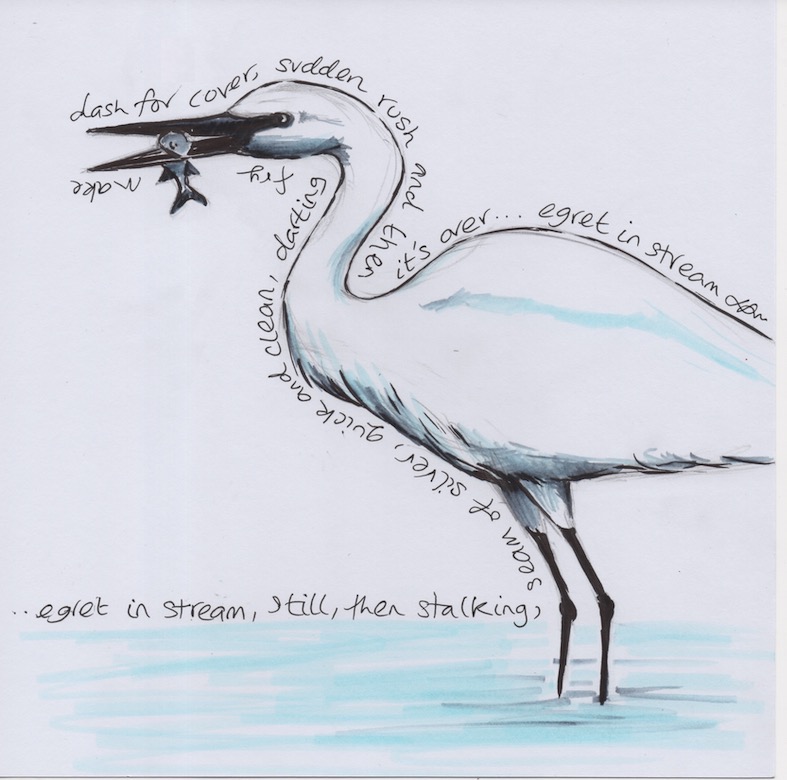 ...egret in stream, still, then stalking,
seam of silver, quick and clean, darting
fry
make
dash for cover, sudden rush and then
it's over... egret in stream